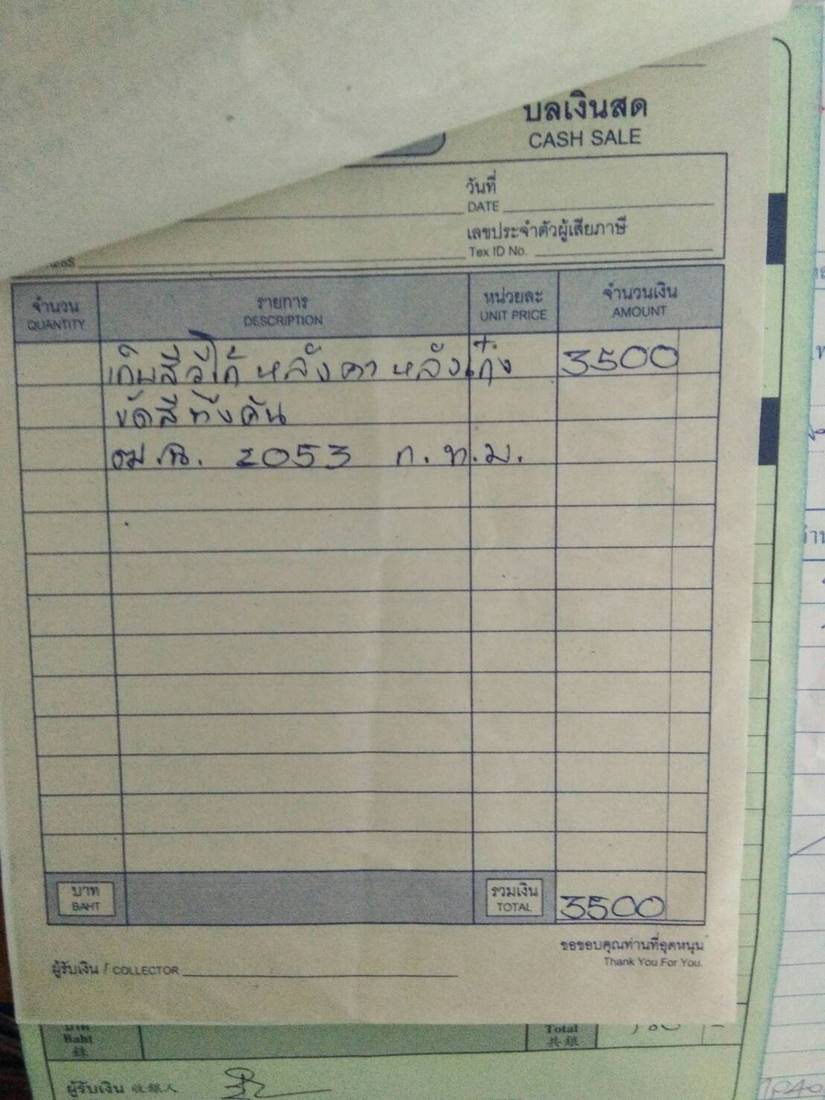 บิลเงินสด
CASH SALE
วันที่
DATE
เลขประจำตัวผู้เสียภาษี
Tex ID No.
จำนวน รายการ หน่วยละ จำนวนเงิน
QUANTITY DESCRIPTION UNIT PRICE AMOUNT
เก็บสี หลังคา หลังเก๋ง 3500
ขัดสีทั้งคัน
2053 ก.ท.ม.
บาท รวมเงิน
BAHT TOTAL 3500
ขอขอบคุณท่านที่อุดหนุน
Thank You For You.
ผู้รับเงิน / COLLECTOR
บาท
Baht Total
ผู้รับเงิน 收銀人